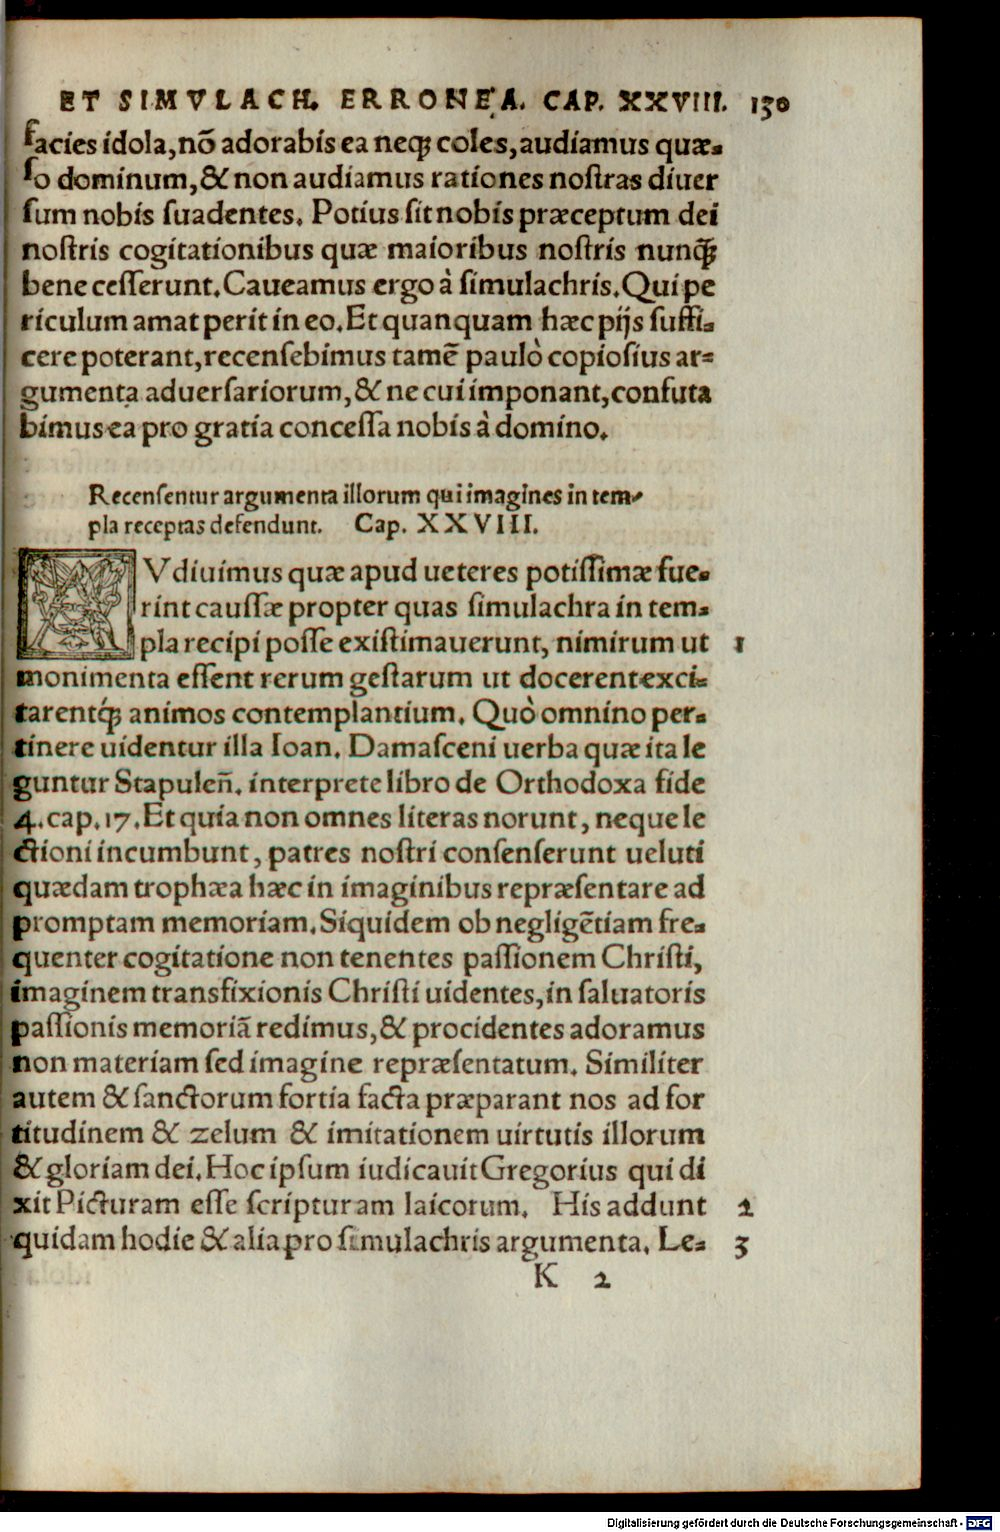 ET SIMVLACH. ERRONEA. CAP. XXVIII. 130
facies idola, nõ adorabis ea neq; coles, audiamus quæ-
so dominum, & non audiamus rationes nostras diuer
sum nobis suadentes. Potius sit nobis præceptum dei
nostris cogitationibus quæ maioribus nostris nunq̃
bene cesserunt. Caueamus ergo à simulachris. Qui pe
riculum amat perit in eo. Et quanquam hæc pijs suffi-
cere poterant, recensebimus tamẽ paulò copiosius ar-
gumenta aduersariorum, & ne cui imponant, confuta
bimus ea pro gratia concessa nobis à domino.
Recensentur argumenta illorum qui imagines in tem-
pla receptas defendunt. Cap. XXVIII.
AVdiuimus quæ apud ueteres potissimæ fue-
rint caussæ propter quas simulachra in tem-
pla recipi posse existimauerunt, nimirum ut 1
monimenta essent rerum gestarum ut docerent exci-
tarentq́; animos contemplantium. Quò omnino per-
tinere uidentur illa Ioan. Damasceni uerba quæ ita le
guntur Stapuleñ. interprete libro de Orthodoxa fide
4. cap. 17. Et quia non omnes literas norunt, neque le
ctioni incumbunt, patres nostri consenserunt ueluti
quædam trophæa hæc in imaginibus repræsentare ad
promptam memoriam. Siquidem ob negligẽtiam fre-
quenter cogitatione non tenentes passionem Christi,
imaginem transfixionis Christi uidentes, in saluatoris
passionis memoriã redimus, & procidentes adoramus
non materiam sed imagine repræsentatum. Similiter
autem & sanctorum fortia facta præparant nos ad for
titudinem & zelum & imitationem uirtutis illorum
& gloriam dei. Hoc ipsum iudicauit Gregorius qui di
xit Picturam esse scripturam laicorum. His addunt 2
quidam hodie & alia pro simulachris argumenta. Le- 3
K 2
Digitalisierung gefördert durch die Deutsche Forschungsgemeinschaft - DFG